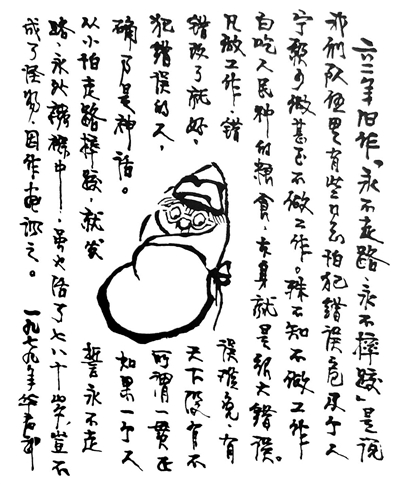 六二年旧作「永不走路、永不摔跤」是说
我们队伍里有些同志怕犯错误危及个人
宁愿少做甚至不做工作。殊不知不做工作
白吃人民种的粮食,本身就是绝大错误。
凡做工作,错误难免,有
错改了就好,天下没有不
犯错误的人,所谓一贯正
确,乃是神话。如果一个人
从小怕走路摔跤,就发誓永不走
路,永处襁褓中,虽也活了七八十岁,岂不
成了怪物,因作画讽之。一九七九年华君武